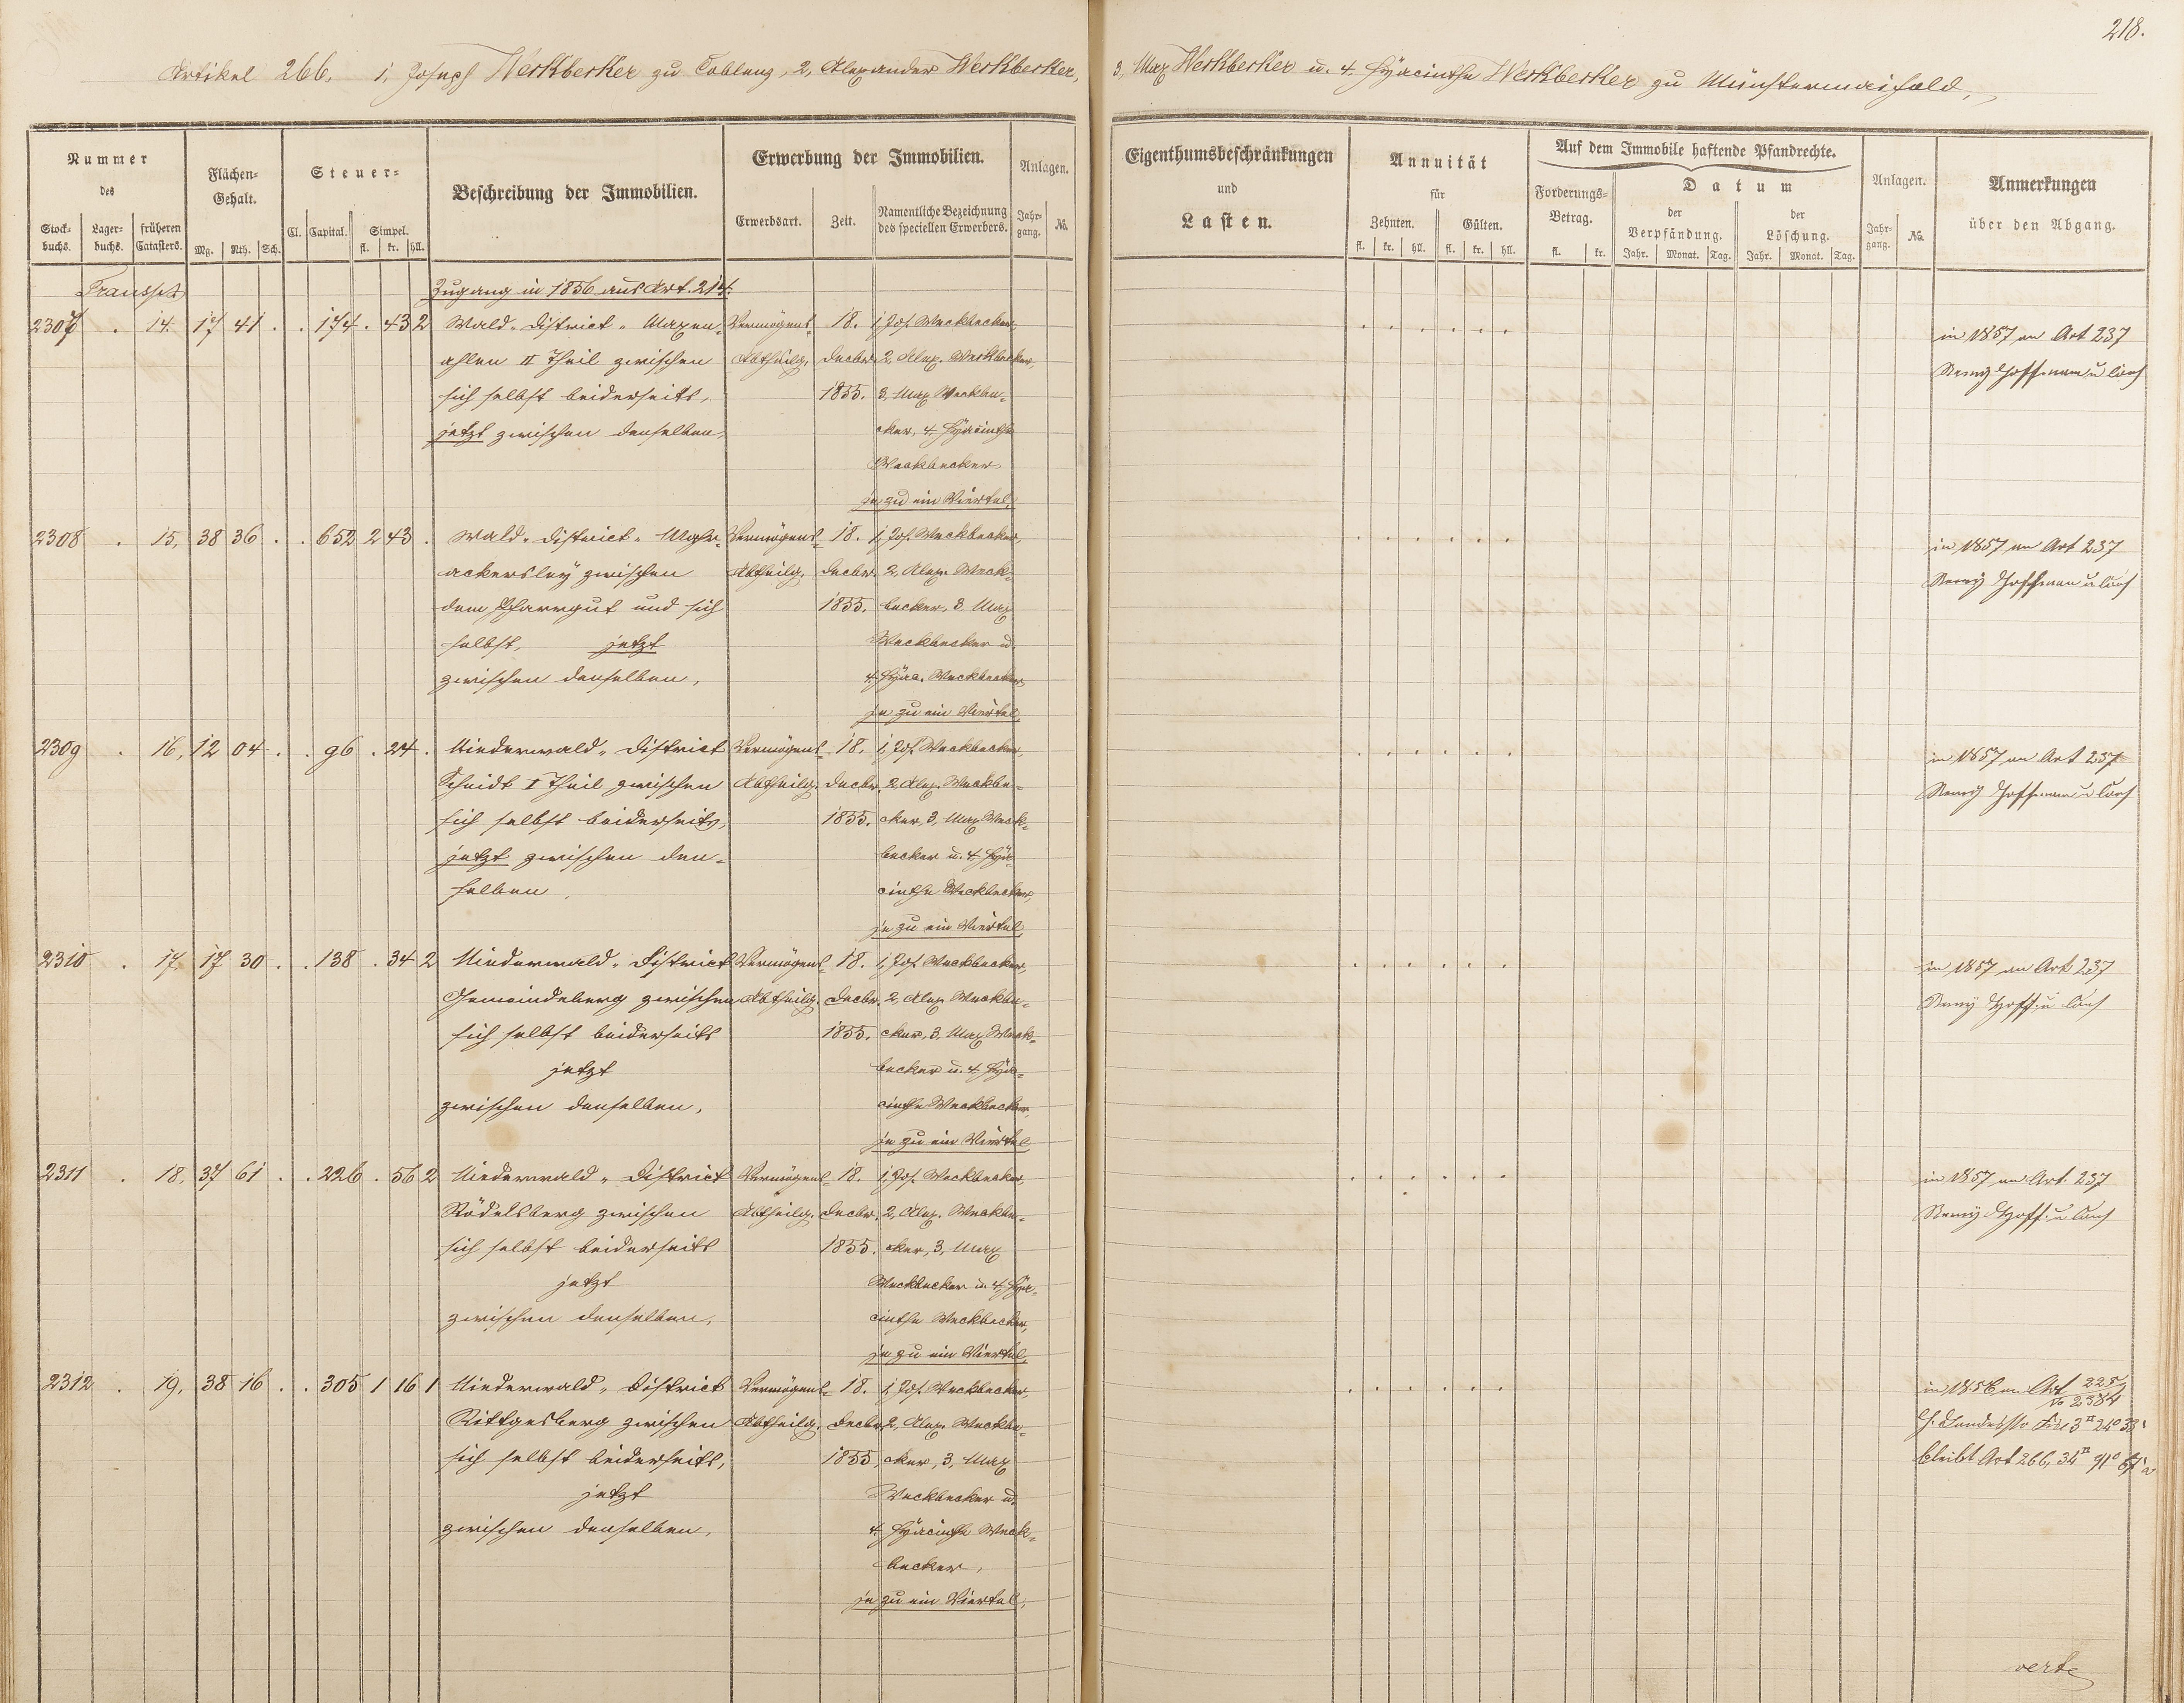 218.
Artikel 266. 1, Joseph Weckbecker zu Coblenz, 2, Alexander Weckbecker, 3, Max Weckbecker u. 4. Hyacinthe Weckbecker zu Münstermaifeld,
Nummer des
Stock-buchs. Lager-buchs. früheren Catasters.
Flächen-Gehalt.
Mg. Rth. Sch.
Steuer-
Cl. Capital. Simpel. fl. kr. hll.
Beschreibung der Immobilien.
Erwerbung der Immobilien.
Erwerbsart. Zeit. Namentliche Bezeichnung des speciellen Erwerbers.
Anlagen.
Jahr-gang. No.
Eigenthumsbeschränkungen und Lasten.
Annuität für
Zehnten. fl. kr. hll. Gülten. fl. kr. hll.
Auf dem Immobile haftende Pfandrechte.
Forderungs-Betrag. fl. kr.
Datum
der Verpfändung. Jahr. Monat. Tag.
der Löschung. Jahr. Monat. Tag.
Anlagen.
Jahr-gang. No.
Anmerkungen über den Abgang.
Transp
Zugang in 1856 aus Art. 214.
2307 . 14. 17 41 . . 174 . 43 2 Wald " District " Maxen- Vermögens- 18. 1, Jos. Weckbecker, in 1857 an Art 237
ahlen II Theil zwischen Abtheilg. Decbr. 2, Alex. Weckbecker, Remy Hoffmann u Cons
sich selbst beiderseits, 1855. 3, Max Weckbe-
jetzt zwischen denselben, cker, 4. Hyacinthe
Weckbecker.
je zu ein Viertel,
2308 . 15, 38 36 . . 652 2 43 . Wald " District " Vermögens- 18. 1, Jos. Weckbecker, in 1857 an Art 237
ackersley zwischen Abtheilg. Decbr. 2, Alex. Weck- Remy Hoffmann u Cons
dem Pfarrgut und sich 1855. becker, 3. Max
selbst, jetzt Weckbecker u.
zwischen denselben, 4. Hyac. Weckbecker,
je zu ein Viertel,
2309 . 16, 12 04 . . 96 . 24 . Niederwald " District Vermögens- 18. 1, Jos. Weckbecker, in 1857 an Art 237
Scheidt I Theil zwischen Abtheilg. Decbr. 2, Alex. Weckbe- Remy Hoffmann u Cons
sich selbst beiderseits, 1855. cker, 3, Max Weck-
jetzt zwischen den- becker u. 4. Hya-
selben, cinthe Weckbecker,
je zu ein Viertel,
2310 . 17, 17 30 . . 138 . 34 2 Niederwald " District Vermögens- 18. 1, Jos. Weckbecker, in 1857 an Art 237
Gemeindeberg zwischen Abtheilg. Decbr. 2, Alex. Weckbe- Remy Hoff. u Cons
sich selbst beiderseits 1855. cker, 3. Max Weck-
jetzt becker u. 4. Hya-
zwischen denselben, cinthe Weckbecker,
je zu ein Viertel
2311 . 18, 37 61 . . 226 . 56 2 Niederwald " District Vermögens- 18. 1, Jos. Weckbecker, in 1857 an Art. 237
Rödelsberg zwischen Abtheilg. Decbr. 2, Alex. Weckbe- Remy Hoff. u Cons
sich selbst beiderseits 1855. cker, 3, Max
jetzt Weckbecker u. 4, Hya-
zwischen denselben, cinthe Weckbecker,
je zu ein Viertel,
2312 . 19, 38 16 . . 305 1 16 1 Niederwald " District Vermögens- 18. 1, Jos. Weckbecker, in 1856 an Art 225 2384
Rittgesberg zwischen Abtheilg. Decbr. 2, Alex. Weckbe-
sich selbst beiderseits, 1855, cker, 3, Max bleibt Art 266,
jetzt Weckbecker u.
zwischen denselben, 4. Hyacinthe Weck-
becker,
je zu ein Viertel,
verte